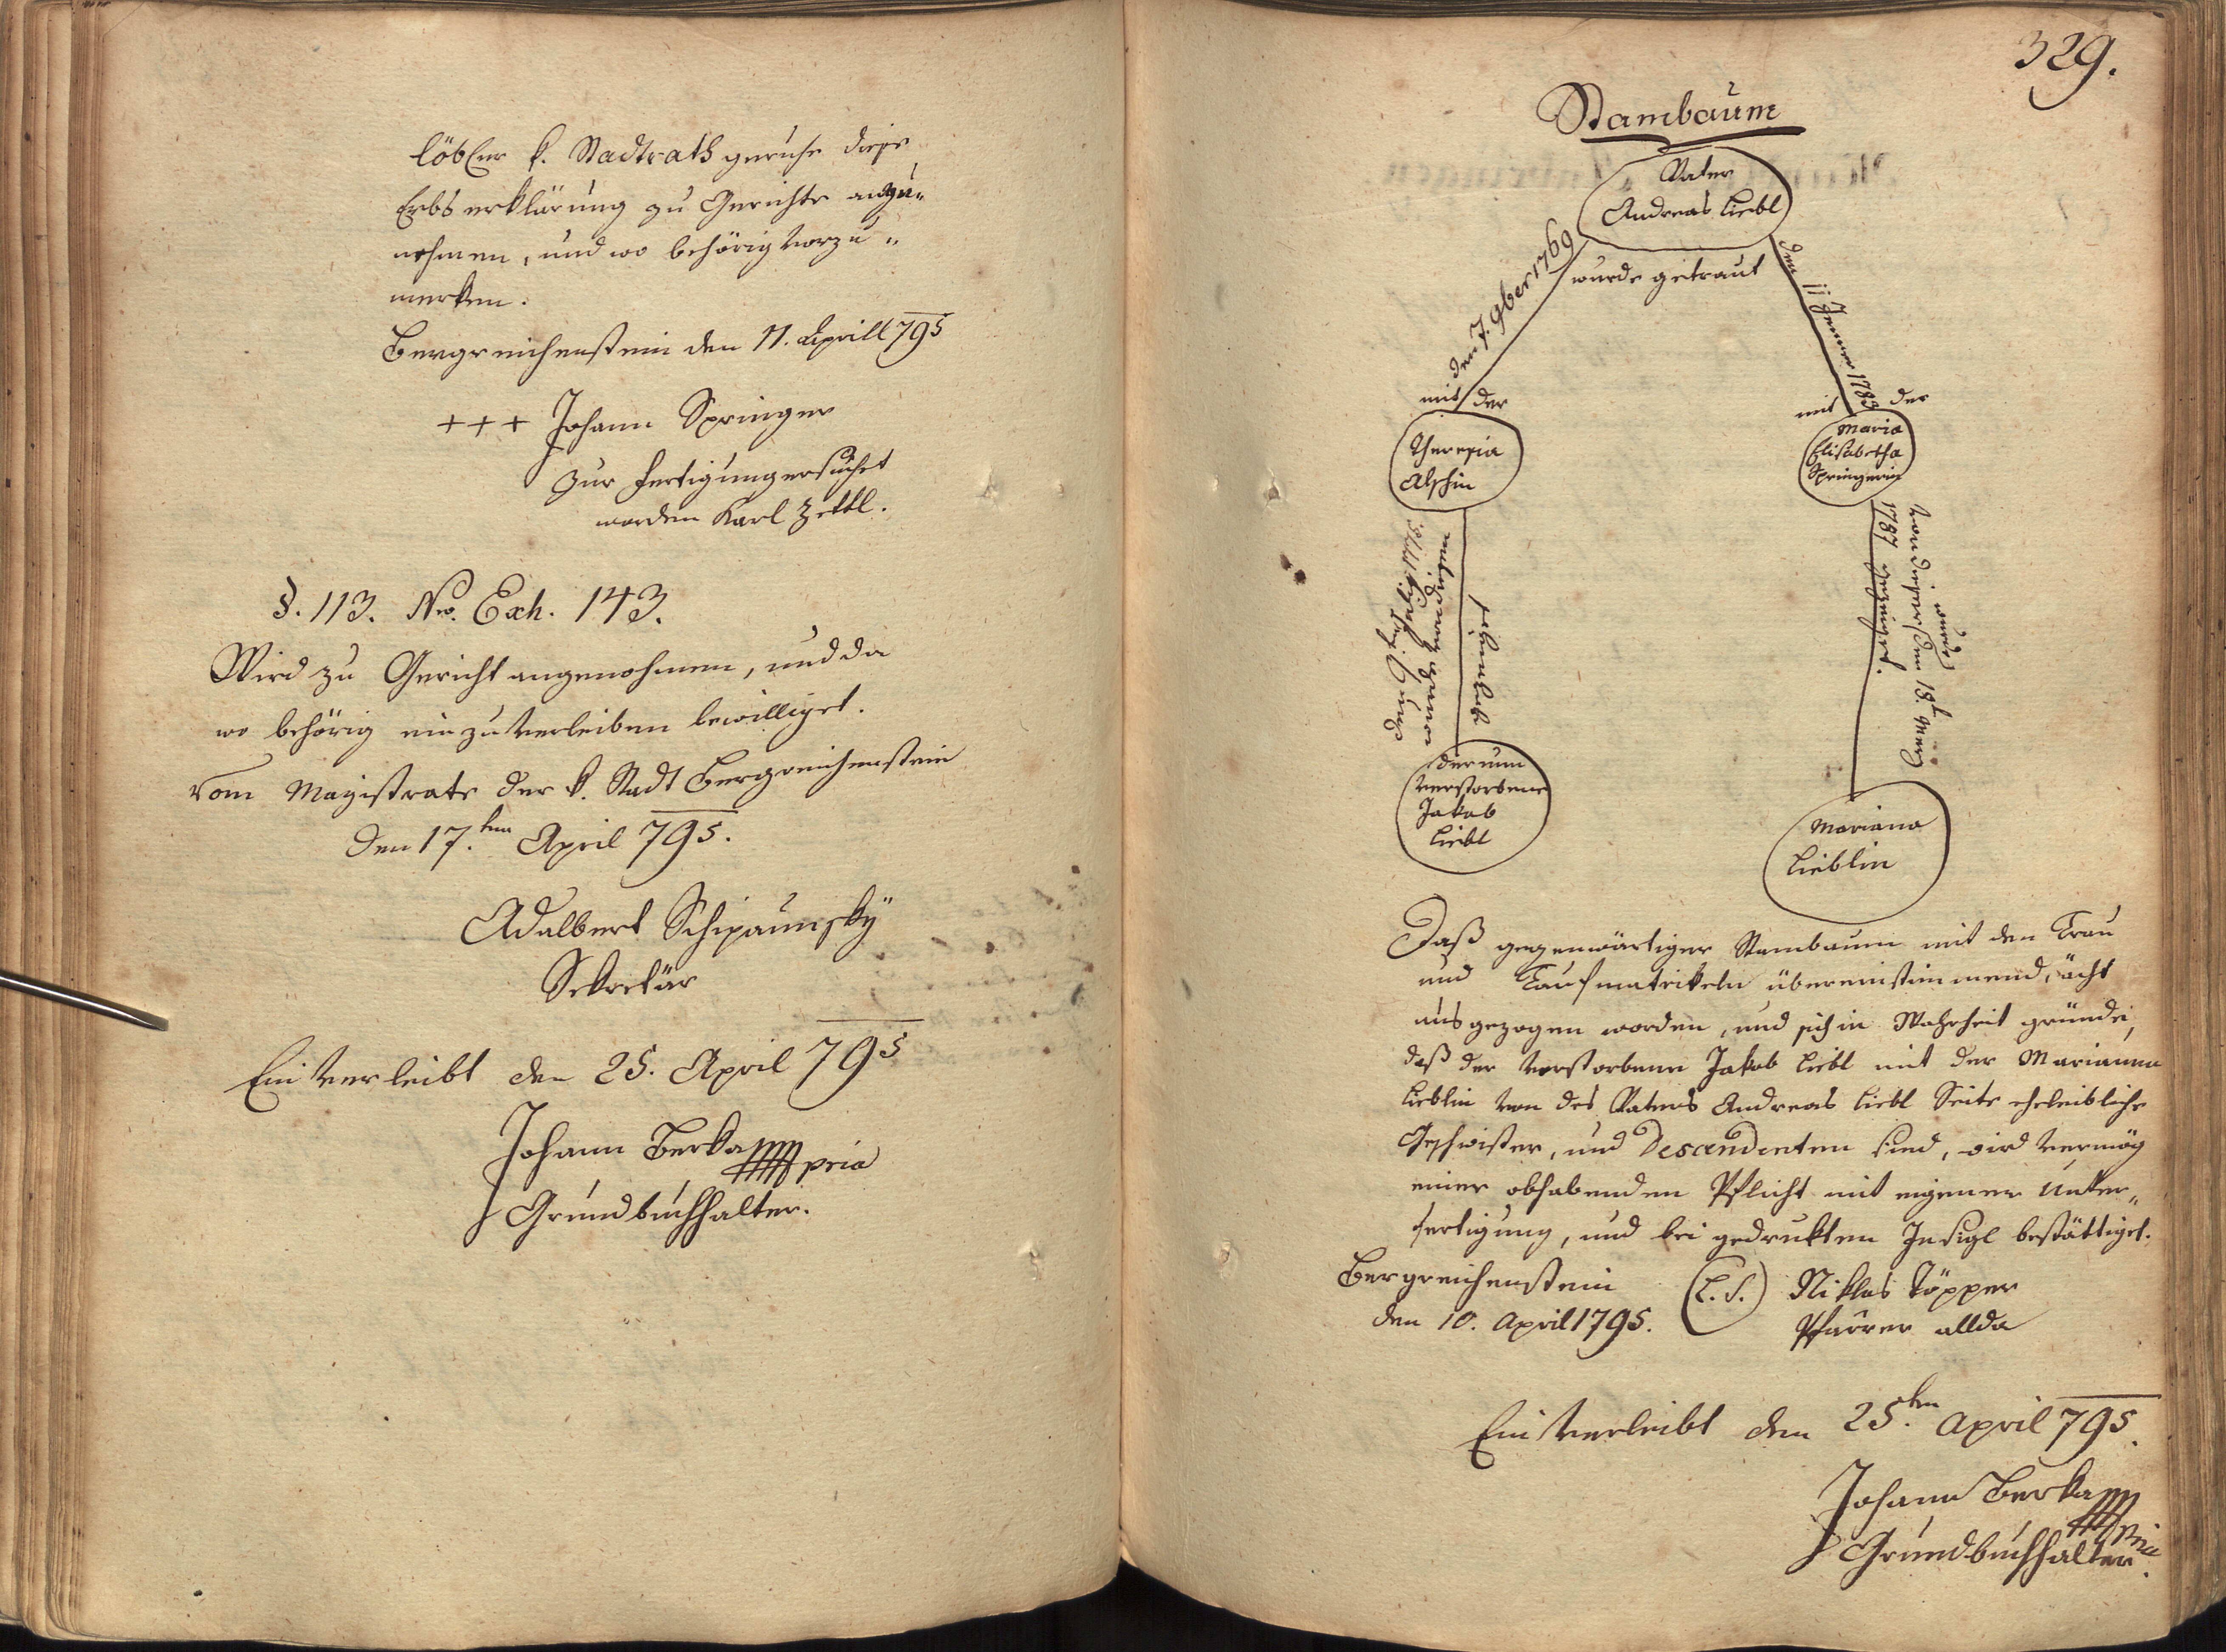 löbler k. Stadtrath geruhe diese
Erbserklärung zu Gerichte anzu„
nehmen, und wo behörig vorzu„
merken.
Bergreichenstein den 11. Aprill 795
+++ Johann Springer
zur Fertigung ersuchet
worden Karl Zettl.
§. 113. Nro. Exh. 143.
Wird zu Gericht angenohmen, und da
wo behörig einzuverleiben bewilliget.
Vom Magistrate der k. Stadt Bergreichenstein
den 17.ten April 795.
Adalbert Schipaunsky
Sekretär
Einverleibt den 25. April 795
Johann Berka mpria
Grundbuchhalter.
329.
Stambaum
Vater
Andreas Liebl
wurde getraut
den 7. 9ber 1769
mit der
den 11 Jenner 1783
mit der
Theresia
Maria
Elisabetha
Springerin
von diesen
von dieser
1787
der nun
verstorbene
Jakob
Liebl
Mariana
Lieblin
Daß gegenwärtiger Stambaum mit den Trau
und Taufmatrikeln übereinstimmend, ächt
ausgezogen worden, und sich in Wahrheit gründe,
daß der verstorbene Jakob Liebl mit der Marianna
Lieblin von des Vaters Andreas Liebl Seite eheleibliche
Geschwister, und Descendenten sind, wird vermög
einer obhabenden Pflicht mit eigener Unter„
fertigung, und bei gedrukten Insigl bestättiget.
Bergreichenstein (L.S.) Niklas Töpper
den 10. April 1795. Pfarrer allda
Einverleibt den 25.ten April 795.
Johann Berka mpria
Grundbuchhalter.